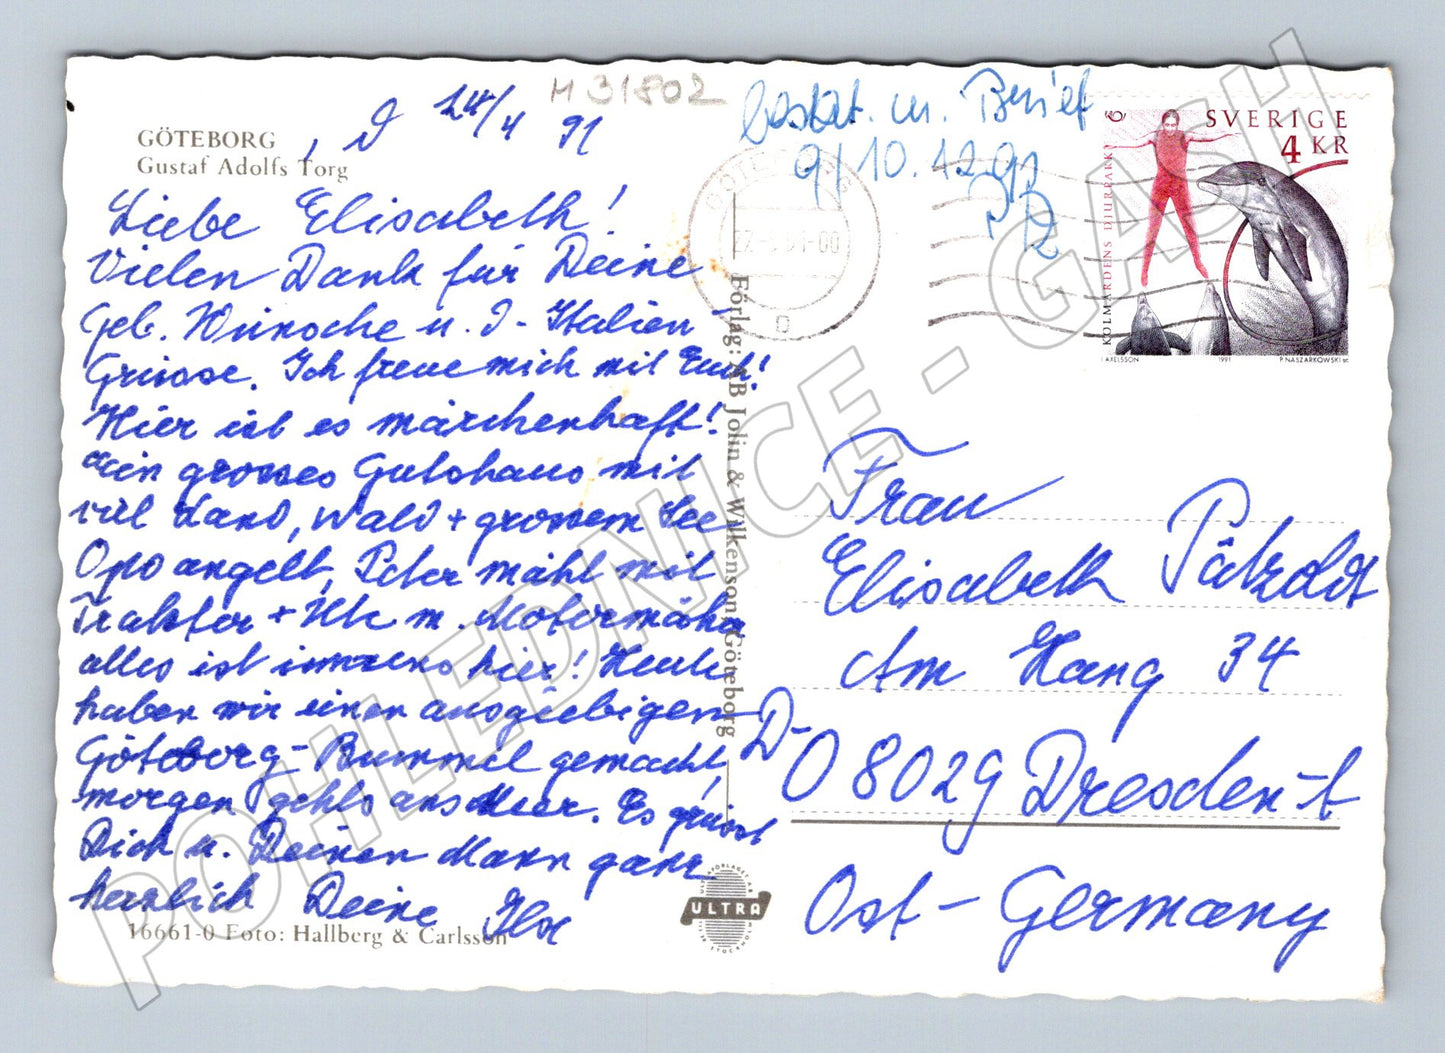 GÖTEBORG
Gustaf Adolfs Torg
M 31802
/4 91
Liebe Elisabeth!
Vielen Dank für Deine
Geb. Wünsche u. I-Italien-
Grüsse. Ich freue mich mit Euch!
Hier ist es märchenhaft!
ein grosses Gutshaus mit
viel Land, Wald + grossem See
Opo angelt, Peter mäht mit
Traktor + m. Motormäher
alles ist immens hier! Heute
haben wir einen ausgiebigen
Göteborg-Bummel gemacht,
morgen gehts ans Meer. Es grüsst
Dich u. Deinen Mann ganz
herzlich Deine Ilse
16661-0 Foto: Hallberg & Carlsson
Förlag: AB Jolin & Wilkenson, Göteborg
ULTRA
bestät. m. Brief
9/10.12.91
GÖTEBORG
SVERIGE
4 KR
KOLMÅRDENS DJURPARK
I AXELSSON 1991 P. NASZARKOWSKI sc
Frau
Elisabeth Pätzoldt
Am Hang 34
D-O 8029 Dresden-b
Ost-Germany
POHLEDNICE - GASH